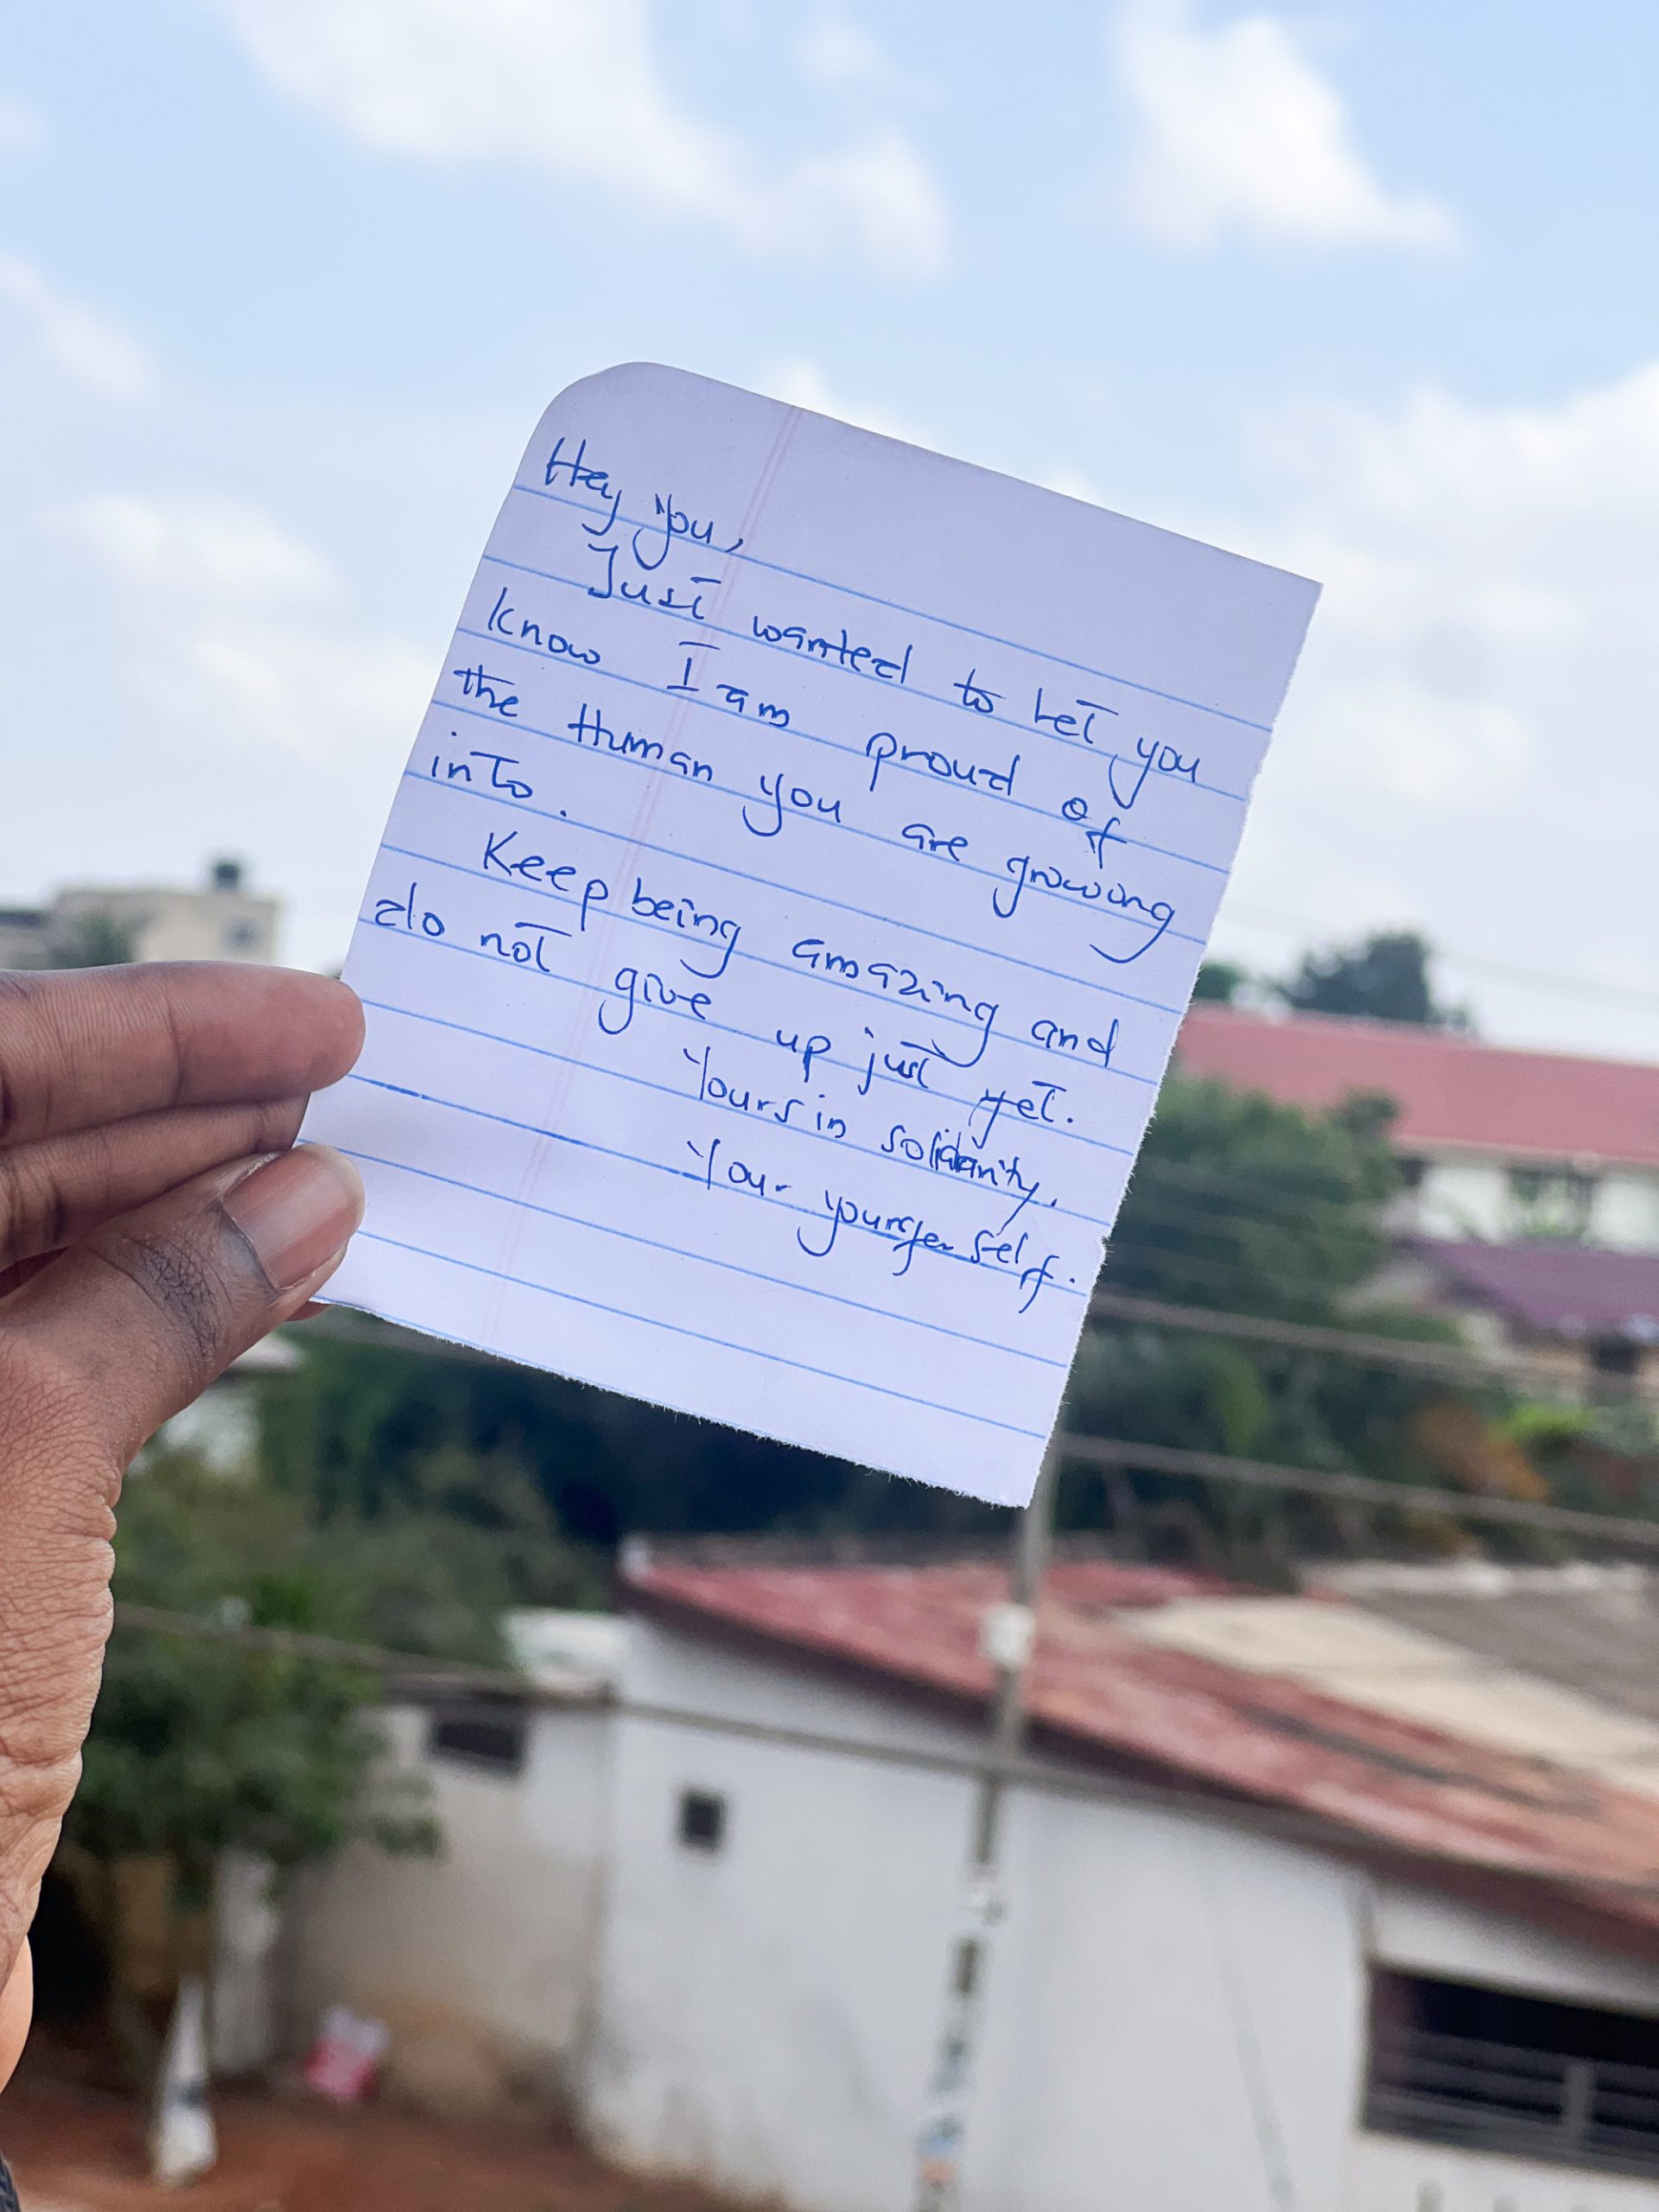 Hey you,
Just wanted to let you
know I am proud of
the Human you are growing
into.
Keep being amazing and
do not give up just yet.
Yours in solidarity,
Your younger self.